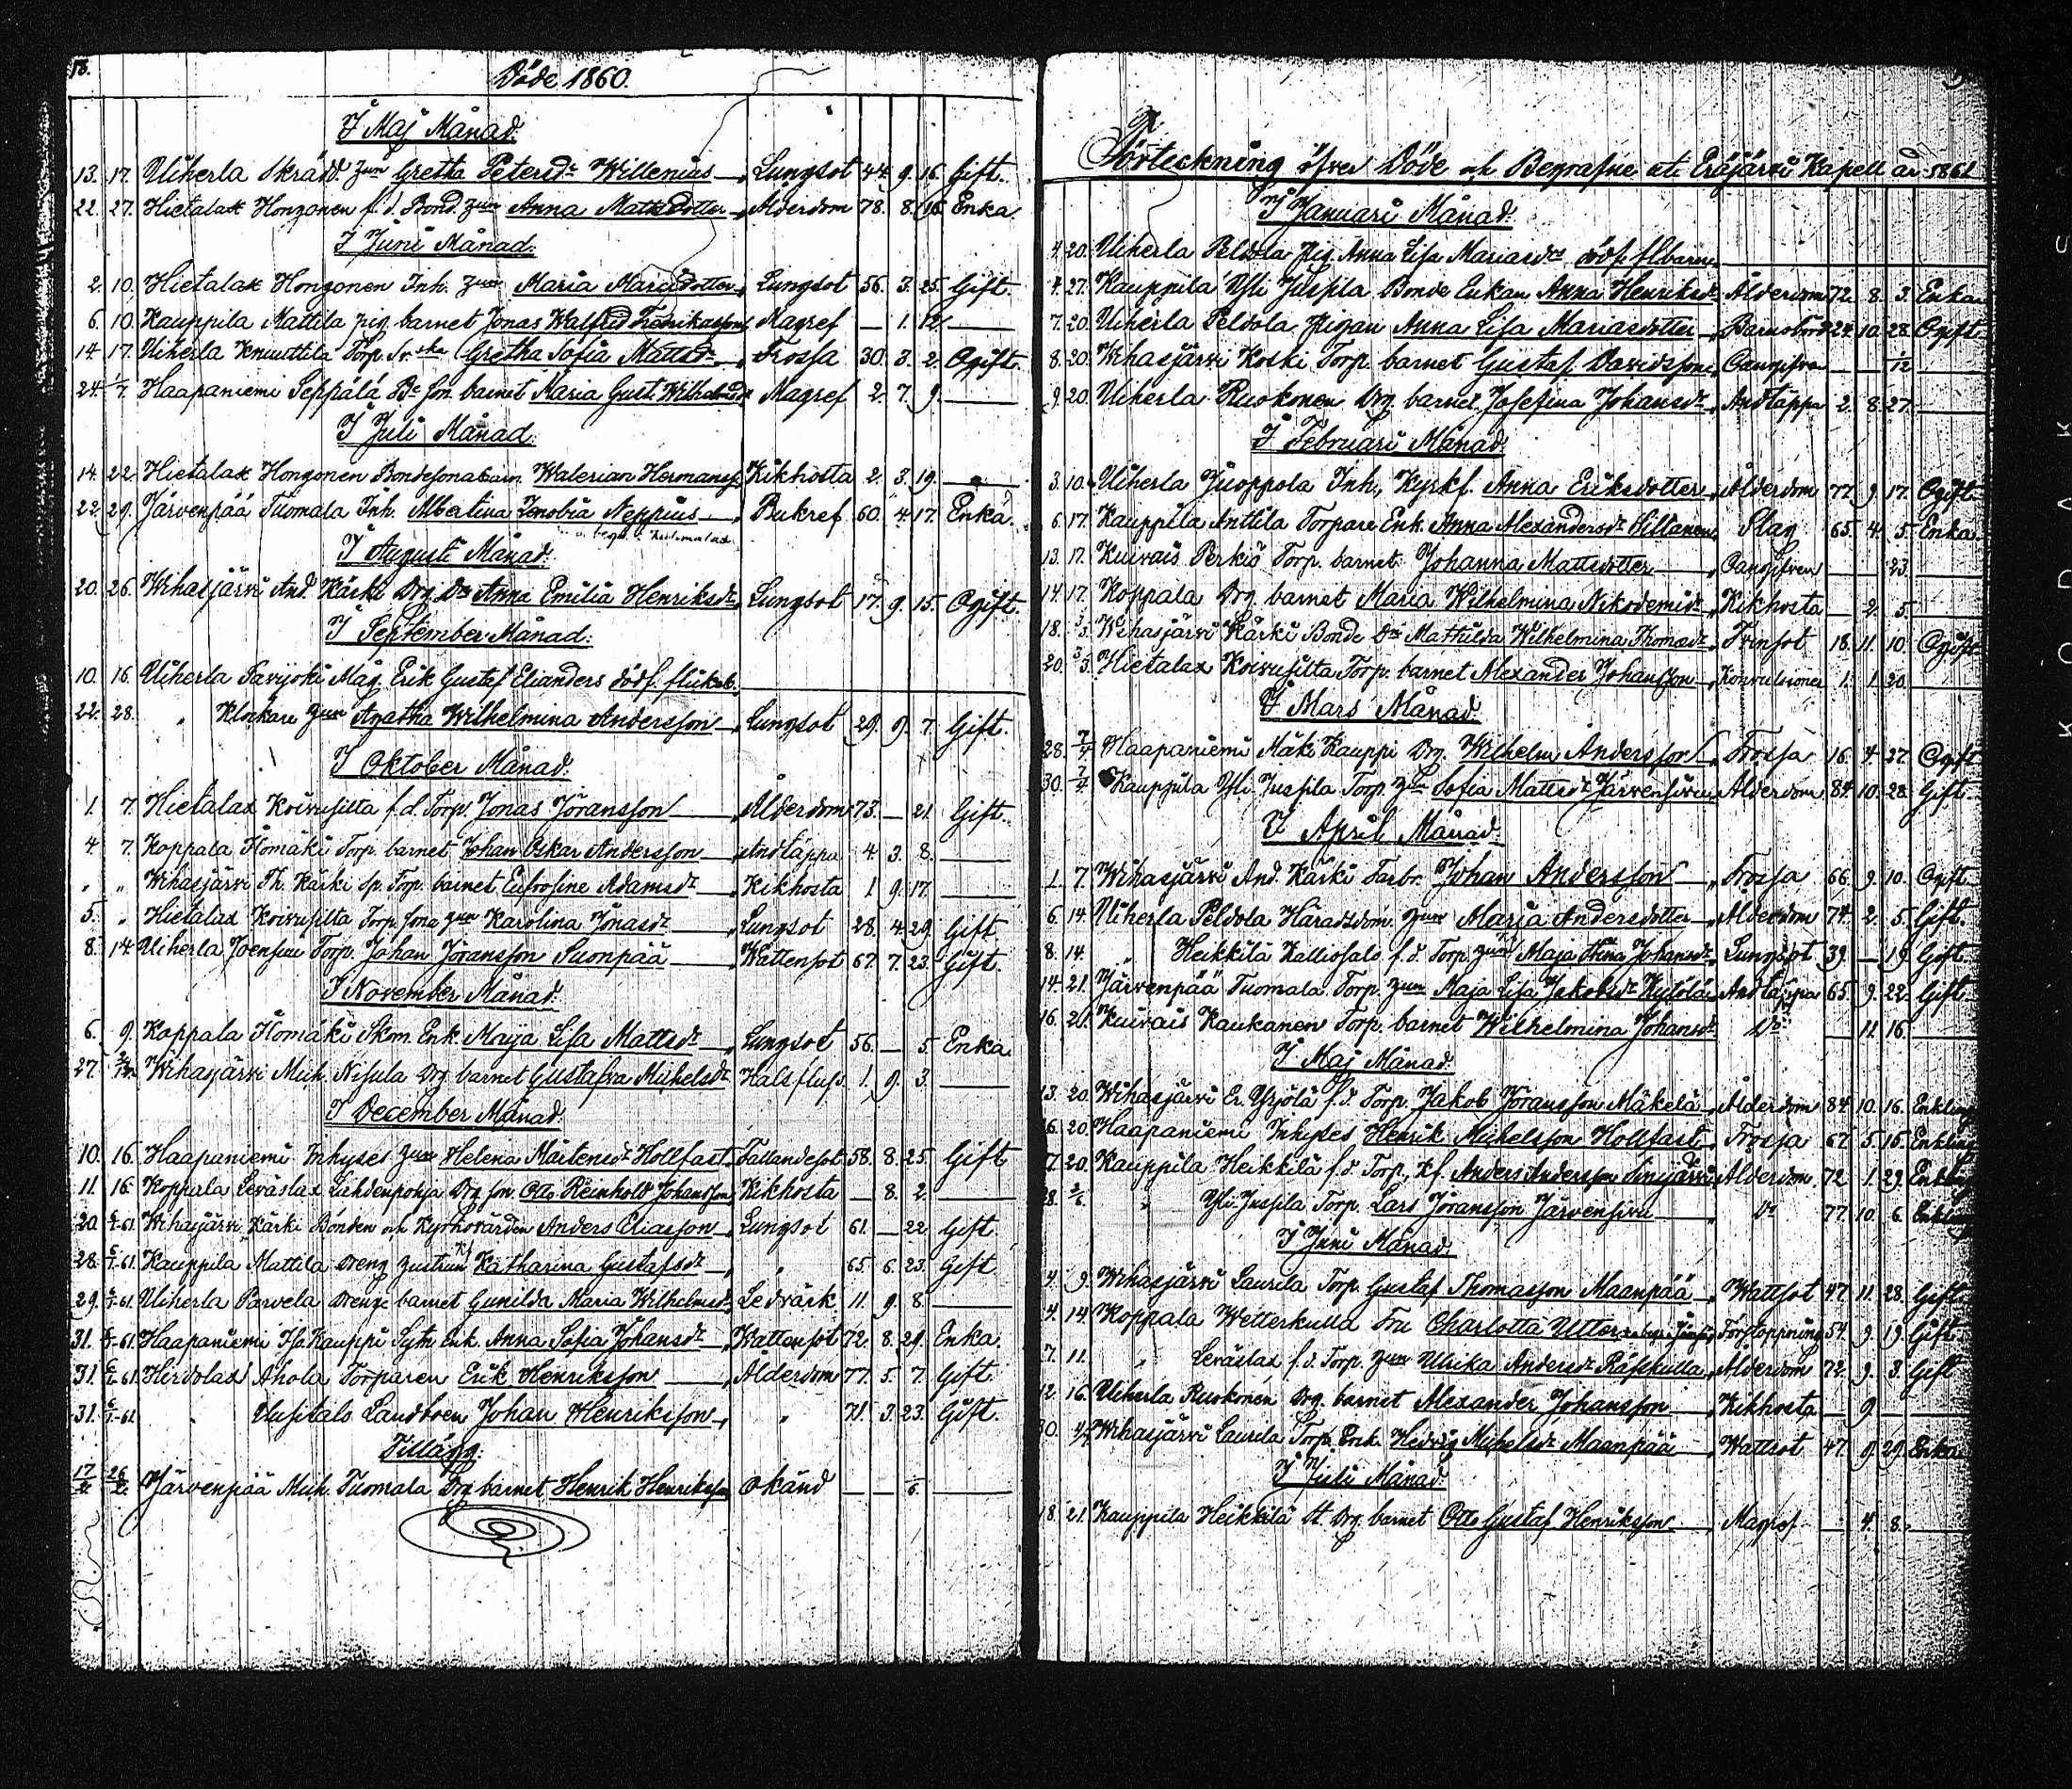 18.
Döde 1860.
I Maj Månad.
13. 17. Uiherla Skrädd. Gretha Petersdr Willenius Lungsot 44. 9. 16. Gift.
22. 27. Hietalax Honganen f. d. Bond. Anna Matsdotter Ålderdom 78. 8. 16. Enka.
I Juni Månad.
2. 10. Hietalax Honganen Inh. Maria Mariædotter Lungsot 56. 3. 25. Gift.
6. 10. Kauppila Mattila pig. barnet Jonas Walfrid Fredrikasson Magref — 1. 12.
14 17. Uiherla Knuuttila Torp. Gretha Sofia Mattsdr Frossa 30. 3. 2. Ogift.
24. 1/7. Haapaniemi Seppälä barnet Maria Gust. Wilhelmsdr Magref 2. 7. 9.
I Juli Månad.
14. 22. Hietalax Honganen Bondesonabarn Walerian Hermanss. Kikhosta 2. 3. 19.
22. 29. Järvenpää Tuomala Inh. Albertina Zenobia Neppius Bukref 60. 4. 17. Enka.
I Augusti Månad.
20. 26. Wihasjärvi And. Kärki Drg. Dr Anna Emilia Henriksdr Lungsot 17. 9. 15. Ogift.
I September Månad.
10. 16. Uiherla Savijoki Mag. Erik Gustaf Elianders dödf. flickeb.
22. 28. " Klockare Agatha Wilhelmina Andersson Lungsot 29. 9. 7. Gift.
I Oktober Månad.
1. 7. Hietalax Koivusilta f. d. Torp. Jonas Jöransson Ålderdom 73. — 21. Gift.
4. 7. Koppala Ilomäki Torp. barnet Johan Oskar Andersson Andtäppa 4. 3. 8.
" " Wihasjärvi Th. Kärki sp. Torp. barnet Eufrosine Adamsdr Kikhosta 1 9. 17.
5. " Hietalax Koivusilta Torp. sons Karolina Jonasdr Lungsot 28. 4. 29. Gift
8. 14. Uiherla Joensuu Torp. Johan Jöransson Suonpää Wattensot 67. 7. 23. Gift.
I November Månad.
6. 9. Koppala Ilomäki Skom. Enk. Maija Lisa Mattsdr Lungsot 56. — 5. Enka
27. 2/12 Wihasjärvi Mich. Nisula Drg. barnet Gustafva Michelsdr Halsfluss. 1. 9. 3.
I December Månad.
10. 16. Haapaniemi Inhyses Helena Mårtensdr Hollfast Fallandesot 58. 8. 25. Gift
11. 16. Koppala Leväslax Lahdenpohja Drg. son. Otto Reinhold Johansson Kikhosta — 8. 2.
20. 6/1-61. Wihasjärvi Kärki Bonden och Kyrkovärden Anders Eliasson Lungsot 61. — 22. Gift
28. 6/1-61. Kauppila Mattila Dreng hustrun Katharina Gustafsdr " 65. 6. 23. Gift
29. 6/1-61. Uiherla Parvela Drenge barnet Gunilda Maria Wilhelmsdr Ledvärk 11. 9. 8.
31. 6/1-61. Haapaniemi Kauppi Sytn. Enk. Anna Sofia Johansdr Wattensot 72. 8. 29. Enka.
31. 6/1-61. Hirvolax Ahola Torparen Erik Henriksson Ålderdom 77. 5. 7. Gift.
31. 6/1-61. " Uusitalo Landboen Johan Henriksson " 71. 3. 23. Gift.
Tillägg.
17/2 26/2 Järvenpää Mich. Tuomala Drg. barnet Henrik Henriksson Okänd — — 6.
Förteckning öfver Döde och Begrafne uti Eräjärvi Kapell år 1861
I Januari Månad.
4. 20. Uiherla Peldola Pig. Anna Lisa Mariasdrs dödf. flbarn
4. 27. Kauppila Yli Jussila Bonde Enkan Anna Henriksdr Ålderdom 72. 8. 3. Enka
7. 20. Uiherla Peldola Pigan Anna Lisa Mariasdotter Barnsbörd 24. 10. 28. Ogift.
8. 20. Wihasjärvi Koski Torp. barnet Gustaf Davidsson Oangifven — — 1/2
9. 20. Uiherla Ruokonen Drg. barnet Josefina Johansdr Andtäppa 2. 8. 27.
I Februari Månad.
3. 10. Uiherla Juoppola Inh. Kyrkf. Anna Eriksdotter Ålderdom 77. 9. 17. Ogift.
6. 17. Kauppila Anttila Torpare Enk. Anna Alexandersdr Sillanen Slag 65. 4. 5. Enka
13. 17. Kuivais Perkiö Torp. barnet Johanna Mattsdotter Oangifven 23.
14. 17. Koppala Drg. barnet Maria Wilhelmina Nikodemisdr Kikhosta — 2. 5.
18. 3/3. Wihasjärvi Kärki Bonde Dr Mathilda Wilhelmina Thomasdr Tvinsot 18. 11. 10. Ogift
20. 3/3. Hietalax Koivusilta Torp. barnet Alexander Johansson Konvulsioner 1. 1. 20.
I Mars Månad.
28. 7/4 Haapaniemi Mäki Kauppi Drg. Wilhelm Andersson Frossa 16. 4. 27. Ogift
30. 7/4 Kauppila Yli Jussila Torp. Sofia Mattsdr Järvensivu Ålderdom 84. 10. 28. Gift.
I April Månad.
1. 7. Wihasjärvi And. Kärki Farbr. Johan Andersson Frossa 66. 9. 10. Ogift.
6. 14. Uiherla Peldola Häradsdom. Maria Andersdotter Ålderdom 74. 2. 5. Gift.
8. 14. " Heikkilä Kalliosalo f. d. Torp. Maja Stina Johansdr Lungsot 39. — 19. Gift.
14. 21. Järvenpää Tuomala Torp. Maja Lisa Jakobsdr Kytölä Andtäppa 65. 9. 22. Gift
16. 21. Kuivais Kaukanen Torp. barnet Wilhelmina Johansdr Do — 11. 16.
I Maj Månad.
13. 20. Wihasjärvi Er. Yrjölä f. d. Torp. Jakob Jöransson Mäkelä Ålderdom 84. 10. 16. Enkling
16. 20. Haapaniemi Inhyses Henrik Michelsson Hollfast Frossa 67. 5. 15. Enkling
17. 20. Kauppila Heikkilä f. d. Torp. Anders Andersson Sinijärvi Ålderdom 72. 1. 29. Enkling
28. 2/6. " Yli-Jussila Torp. Lars Jöransson Järvensivu Do 77. 10. 6. Enkling
I Juni Månad.
4. 9. Wihasjärvi Laurila Torp. Gustaf Thomasson Maanpää Wattsot 47. 11. 28. Gift.
4. 14. Koppala Wetterkulla Fru Charlotta Utter Förstoppning 54. 9. 19. Gift.
7. 11. " Leväslax f. d. Torp. Ulrika Andersdr Räfskulla Ålderdom 72. 9. 3. Gift
12. 16. Uiherla Ruokonen Drg. barnet Alexander Johansson Kikhosta — 9.
30. Wihasjärvi Laurila Torp. Enk. Hedvig Michelsdr Maanpää Wattsot 47. 9. 29. Enka
I Juli Månad.
18. 21. Kauppila Heikkilä Drg. barnet Otto Gustaf Henriksson Magref — 4. 8.
KODAK S